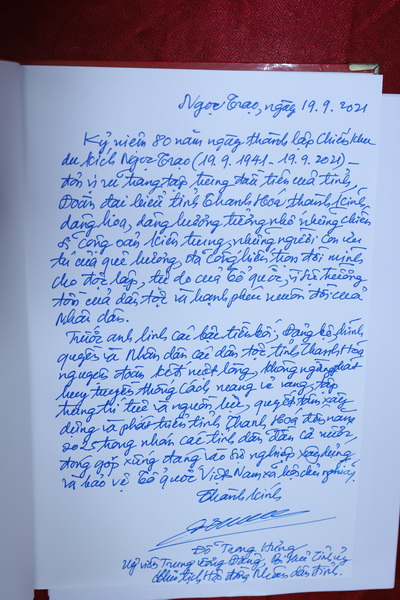 Ngọc Trạo, ngày 19.9.2021
Kỷ niệm 80 năm ngày thành lập Chiến khu
du kích Ngọc Trạo (19.9.1941 - 19.9.2021) -
đơn vị vũ trang tập trung đầu tiên của tỉnh,
Đoàn đại biểu tỉnh Thanh Hoá thành kính
dâng hoa, dâng hương tưởng nhớ những chiến
sĩ cộng sản kiên trung, những người con ưu
tú của quê hương, đã cống hiến trọn đời mình
cho độc lập, tự do của Tổ quốc, vì sự trường
tồn của dân tộc và hạnh phúc muôn đời của
Nhân dân.
Trước anh linh các bậc tiền bối, Đảng bộ, chính
quyền và Nhân dân các dân tộc tỉnh Thanh Hoá
nguyện đoàn kết một lòng, không ngừng phát
huy truyền thống cách mạng vẻ vang, tập
trung trí tuệ và nguồn lực, quyết tâm xây
dựng và phát triển tỉnh Thanh Hoá đến năm
2025 trong nhóm các tỉnh dẫn đầu cả nước,
đóng góp xứng đáng vào sự nghiệp xây dựng
và bảo vệ Tổ quốc Việt Nam xã hội chủ nghĩa.
Thành kính
Đỗ Trọng Hưng
Uỷ viên Trung ương Đảng, Bí thư Tỉnh uỷ
Chủ tịch Hội đồng Nhân dân tỉnh.